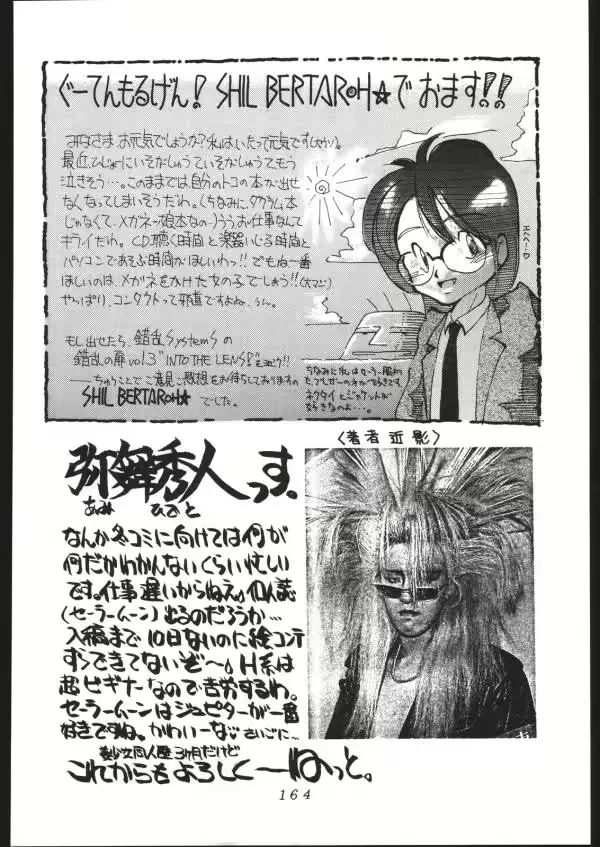 ぐーてんもるげん! SHIL BERTAROH☆でおます!!
みなさま お元気でしょうか?私はいたって元気です
最近ひじょーにいそがしゅうていそがしゅうてもう
泣きそう…。このままでは自分のトコの本が出せ
なくなってしまいそうだわ。(ちなみに、タカラヅカ本
じゃなくて、メガネっ娘本なの…)うう お仕事なんて
キライだわ。CD聴く時間と楽器いじる時間と
パソコンであそぶ時間がほしいわっ!! でもね一番
ほしいのは、メガネをかけた女の子でしょう!!
やっぱり、コンタクトって邪道ですよね、うん。
エヘヘ…♡
もし出せたら、錯乱SystemSの
錯乱の扉 vol.3 "INTO THE LENS"
ちゅうことでご意見ご感想をお待ちしておりますの
SHIL BERTAROH☆でした。
ちなみに私はセーラー服より
ネクタイとジャケットが
好きなのよ…。
弥舞秀人っす。
あみ ひでと
なんか冬コミに向けては何が
何だかわかんないくらい忙しい
です。仕事遅いからねえ。個人誌
(セーラームーン)出るのだろうか…
入稿まで10日ないのに絵コンテ
すらできてないぞ〜。H系は
超ビギナーなので苦労するわ。
セーラームーンはジュピターが一番
好きですね。かわいーな。さいごに…
美少女同人歴3ヶ月だけど
これからもよろしく〜ねっと。
〈著者近影〉
164